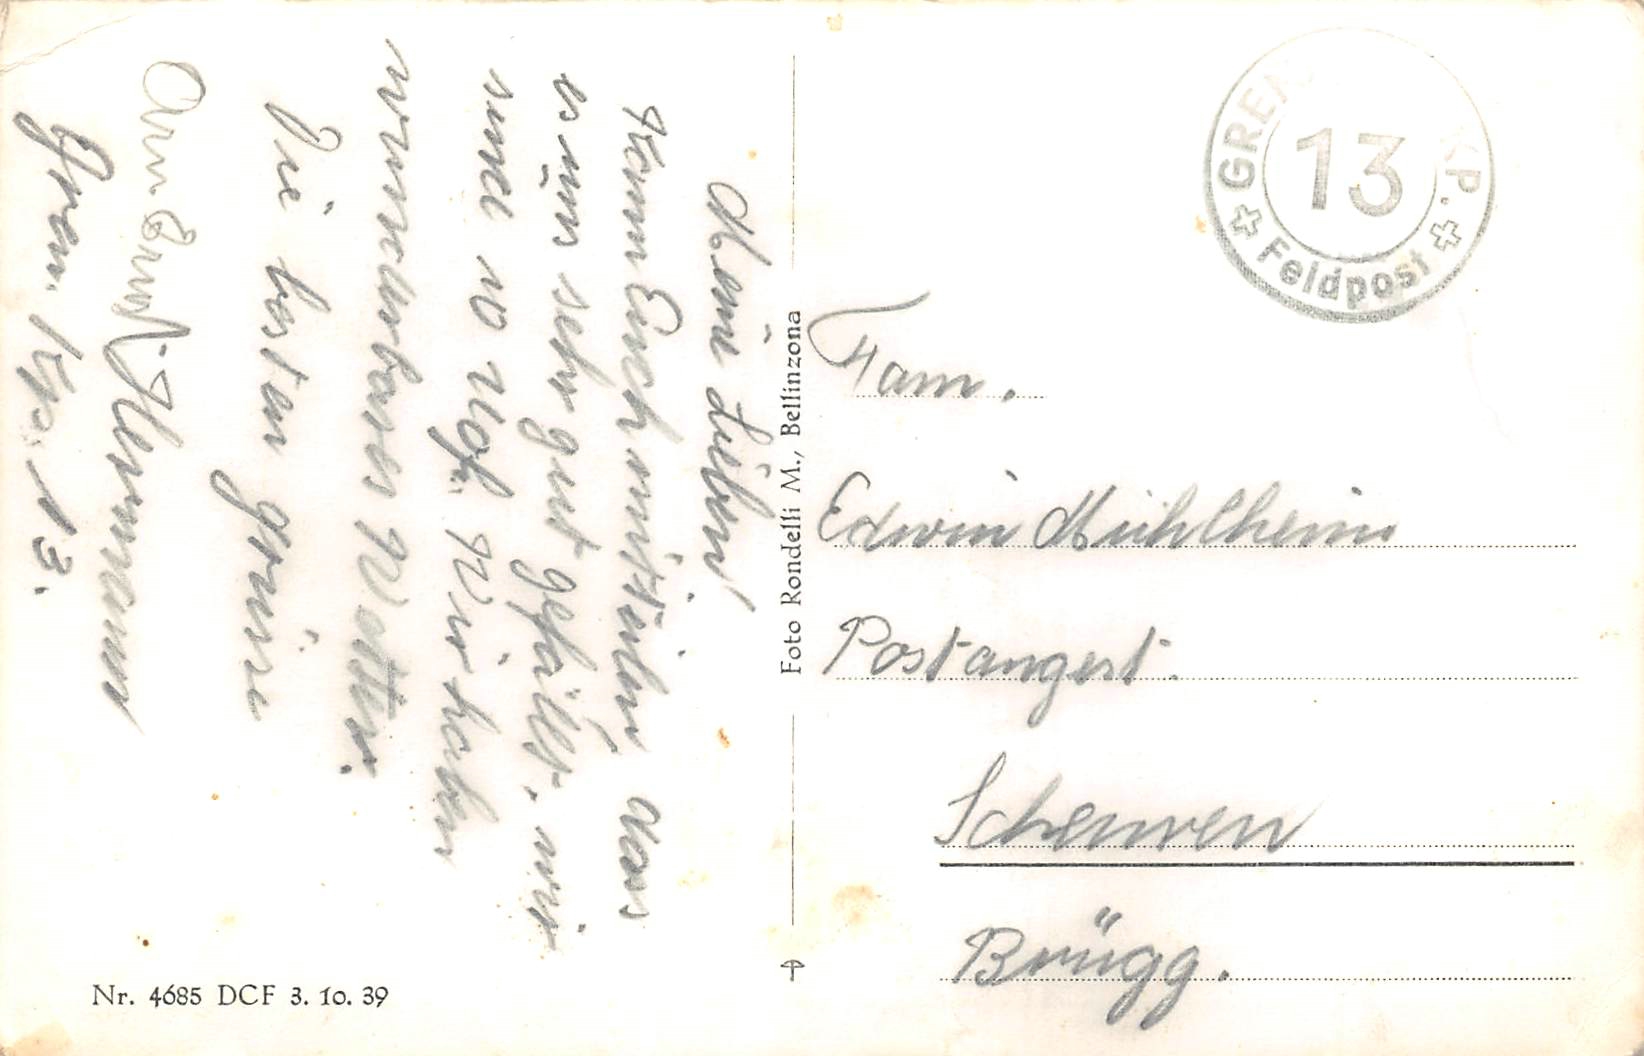 Meine Lieben!
Kann Euch mitteilen, das
es uns sehr gut gefällt, wir
sind 10 Wir haben
wunderbares Wetter.
Die besten Grüsse
Hermann
Gren. Kp. 13.
Nr. 4685 DCF 3. 10. 39
Foto Rondelli M., Bellinzona
GREN. KP.
13
Feldpost
Fam.
Edwin Mühlheim
Postangest.
Scheuren
Brügg.